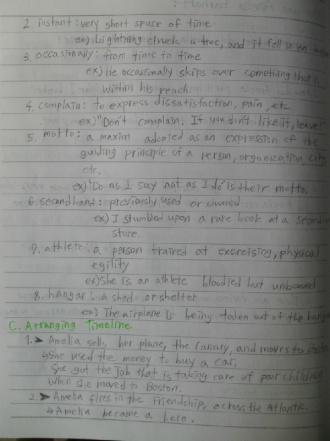 2 instant: very short space of time
ex) Lightning struck a tree, and it fell
3. occasionally: from time to time
ex) He occasionally skips over something that is
within his reach.
4. complain: to express dissatisfaction, pain, etc
ex) "Don't complain. If you don't like it, leave
5. motto: a maxim adopted as an expression of the
guiding principle of a person, organization, city
etc.
ex) "Do as I say not as I do" is their motto.
6. secondhand: previously used or owned
ex) I stumbled upon a rare book at a second
store.
7. athlete: a person trained at exercising, physical
egility
ex) She is an athlete bloodied but unbowed
8. hangar: a shed or shelter
ex) The airplane is being taken out of the
C. Arranging Timeline
1. ➤ Amelia sells her plane, the Canary, and moves to
She used the money to buy a car.
She got the job that is taking care of poor children
when she moved to Boston.
2. ➤ Amelia flies in the Friendship, across the Atlantic
Amelia became a hero.